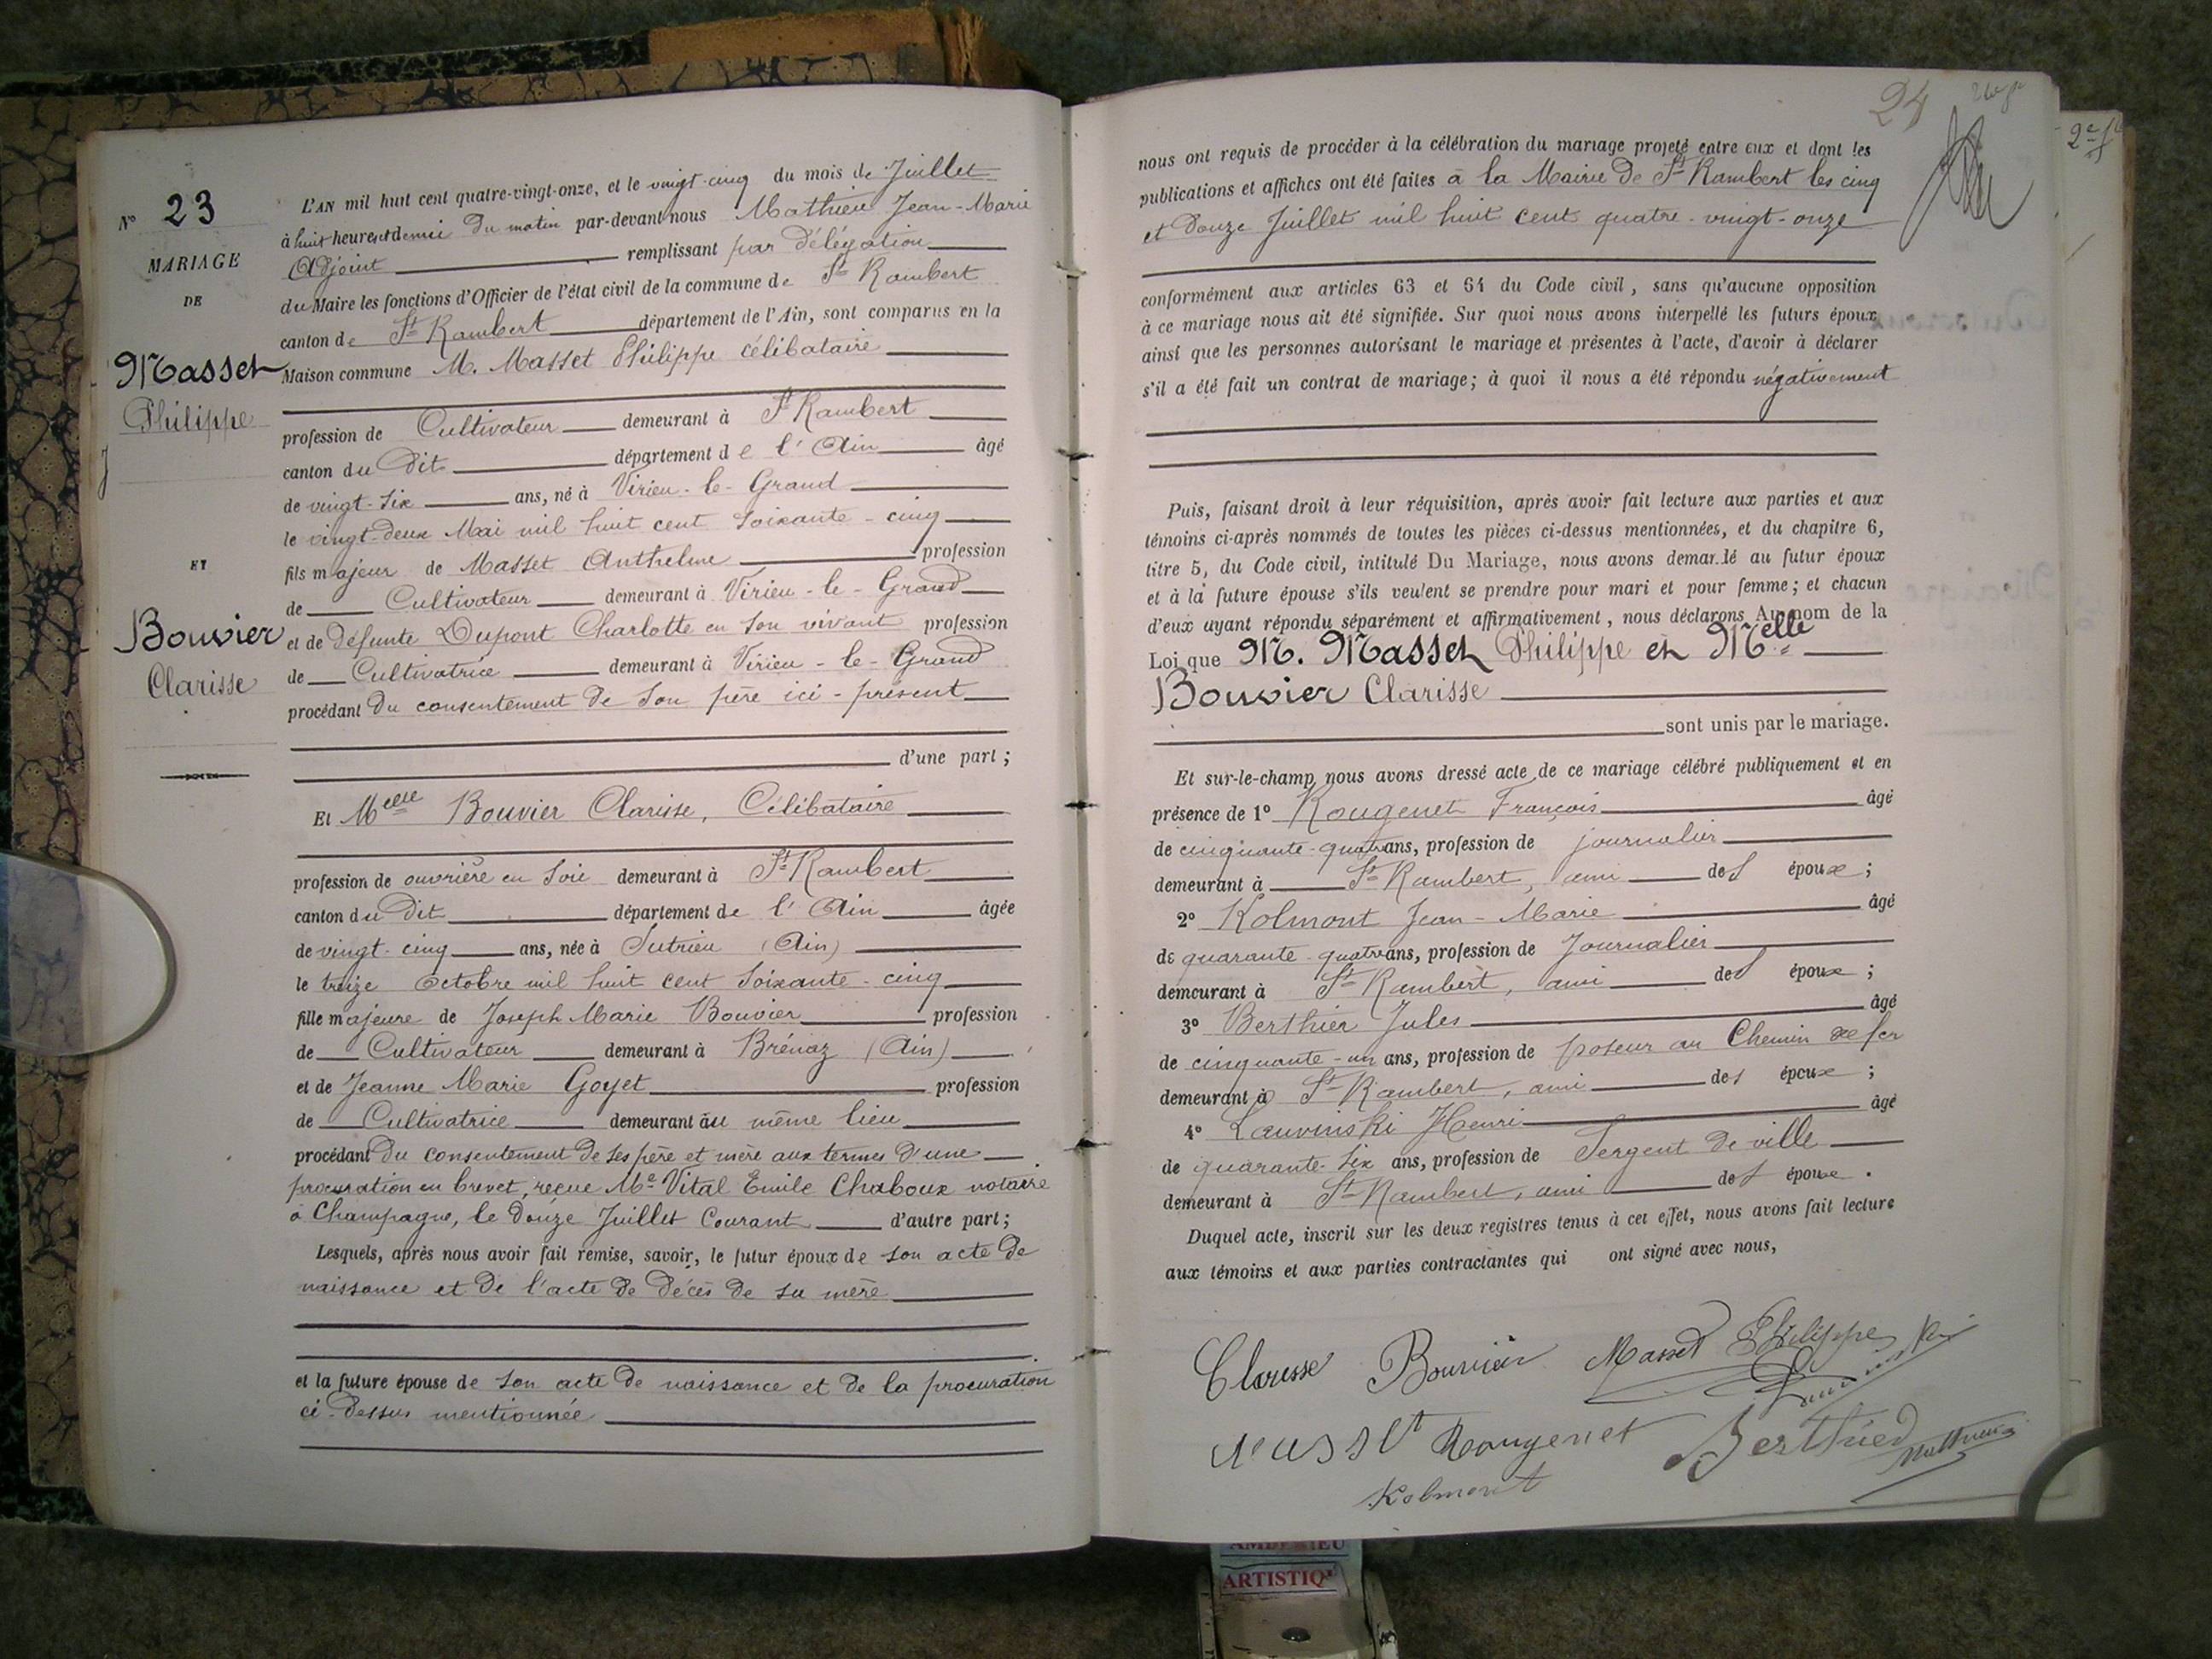 N° 23
MARIAGE
DE
Masset
Philippe
ET
Bouvier
Clarisse
L'AN mil huit cent quatre-vingt-onze, et le vingt-cinq du mois de Juillet
à huit heures et demie du matin par-devant nous Mathieu Jean-Marie
Adjoint remplissant par délégation
du Maire les fonctions d'Officier de l'état civil de la commune de St Rambert
canton de St Rambert département de l'Ain, sont comparus en la
Maison commune M. Masset Philippe célibataire
profession de Cultivateur demeurant à St Rambert
canton du dit département de l'Ain âgé
de vingt-six ans, né à Virieu-le-Grand
le vingt-deux Mai mil huit cent soixante-cinq
fils majeur de Masset Anthelme profession
de Cultivateur demeurant à Virieu-le-Grand
et de défunte Dupont Charlotte en son vivant profession
de Cultivatrice demeurant à Virieu-le-Grand
procédant du consentement de son père ici-présent
d'une part ;
Et Melle Bouvier Clarisse, Célibataire
profession de ouvrière en soie demeurant à St Rambert
canton du dit département de l'Ain âgée
de vingt-cinq ans, née à Sutrieu (Ain)
le treize octobre mil huit cent soixante-cinq
fille majeure de Joseph Marie Bouvier profession
de Cultivateur demeurant à Brénaz (Ain)
et de Jeanne Marie Goyet profession
de Cultivatrice demeurant au même lieu
procédant du consentement de ses père et mère aux termes d'une
procuration en brevet, reçue Me Vital Emile Chaboux notaire
à Champagne, le douze Juillet Courant d'autre part ;
Lesquels, après nous avoir fait remise, savoir, le futur époux de son acte de
naissance et de l'acte de décès de sa mère
et la future épouse de son acte de naissance et de la procuration
ci-dessus mentionnée
24
2e f
nous ont requis de procéder à la célébration du mariage projeté entre eux et dont les
publications et affiches ont été faites à la Mairie de St Rambert les cinq
et douze Juillet mil huit cent quatre-vingt-onze
conformément aux articles 63 et 64 du Code civil, sans qu'aucune opposition
à ce mariage nous ait été signifiée. Sur quoi nous avons interpellé les futurs époux
ainsi que les personnes autorisant le mariage et présentes à l'acte, d'avoir à déclarer
s'il a été fait un contrat de mariage ; à quoi il nous a été répondu négativement
Puis, faisant droit à leur réquisition, après avoir fait lecture aux parties et aux
témoins ci-après nommés de toutes les pièces ci-dessus mentionnées, et du chapitre 6,
titre 5, du Code civil, intitulé Du Mariage, nous avons demandé au futur époux
et à la future épouse s'ils veulent se prendre pour mari et pour femme ; et chacun
d'eux ayant répondu séparément et affirmativement, nous déclarons Au nom de la
Loi que M. Masset Philippe et Melle
Bouvier Clarisse
sont unis par le mariage.
Et sur-le-champ nous avons dressé acte de ce mariage célébré publiquement et en
présence de 1° Rougenet François âgé
de cinquante-quatre ans, profession de journalier
demeurant à St Rambert, ami des époux ;
2° Kolmont Jean-Marie âgé
de quarante-quatre ans, profession de Journalier
demeurant à St Rambert, ami des époux ;
3° Berthier Jules âgé
de cinquante-un ans, profession de poseur au Chemin de fer
demeurant à St Rambert, ami des époux ;
4° Lauvinski Henri âgé
de quarante-six ans, profession de Sergent de ville
demeurant à St Rambert, ami des époux.
Duquel acte, inscrit sur les deux registres tenus à cet effet, nous avons fait lecture
aux témoins et aux parties contractantes qui ont signé avec nous,
Claresse Bouvier Masset Philippe
Masset Rougenet Berthier Mathieu
Kolmont
AMBERIEU
ARTISTIQ